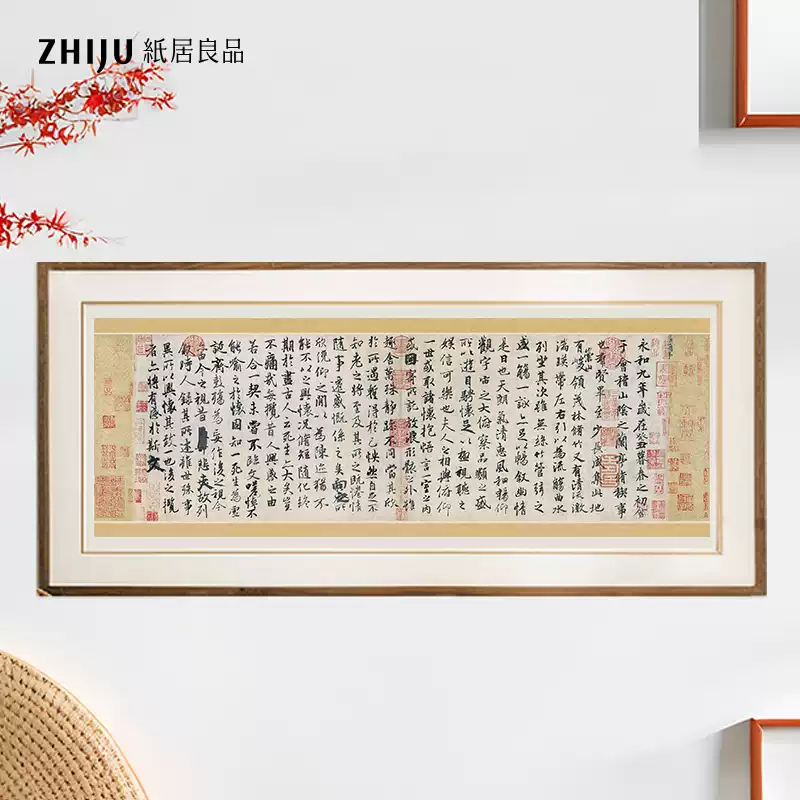 ZHIJU 紙居良品
永和九年歲在癸丑暮春之初會
于會稽山陰之蘭亭脩稧事
也羣賢畢至少長咸集此地
有崇山峻領茂林脩竹又有清流激
湍暎帶左右引以為流觴曲水
列坐其次雖無絲竹管弦之
盛一觴一詠亦足以暢敘幽情
是日也天朗氣清惠風和暢仰
觀宇宙之大俯察品類之盛
所以遊目騁懷足以極視聽之
娛信可樂也夫人之相與俯仰
一世或取諸懷抱悟言一室之內
或因寄所託放浪形骸之外雖
趣舍萬殊靜躁不同當其欣
於所遇蹔得於己怏然自足不
知老之將至及其所之既惓情
隨事遷感慨係之矣向之所
欣俛仰之閒以為陳迹猶不
能不以之興懷況脩短隨化終
期於盡古人云死生亦大矣豈
不痛哉每攬昔人興感之由
若合一契未嘗不臨文嗟悼不
能喻之於懷固知一死生為虛
誕齊彭殤為妄作後之視今
亦由今之視昔悲夫故列
敘時人錄其所述雖世殊事
異所以興懷其致一也後之攬
者亦將有感於斯文